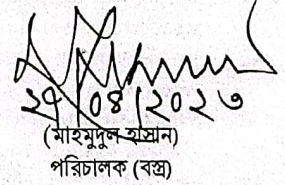 ২৭/০৪/২০২৩
(মাহমুদুল হাসান)
পরিচালক (বস্ত্র)